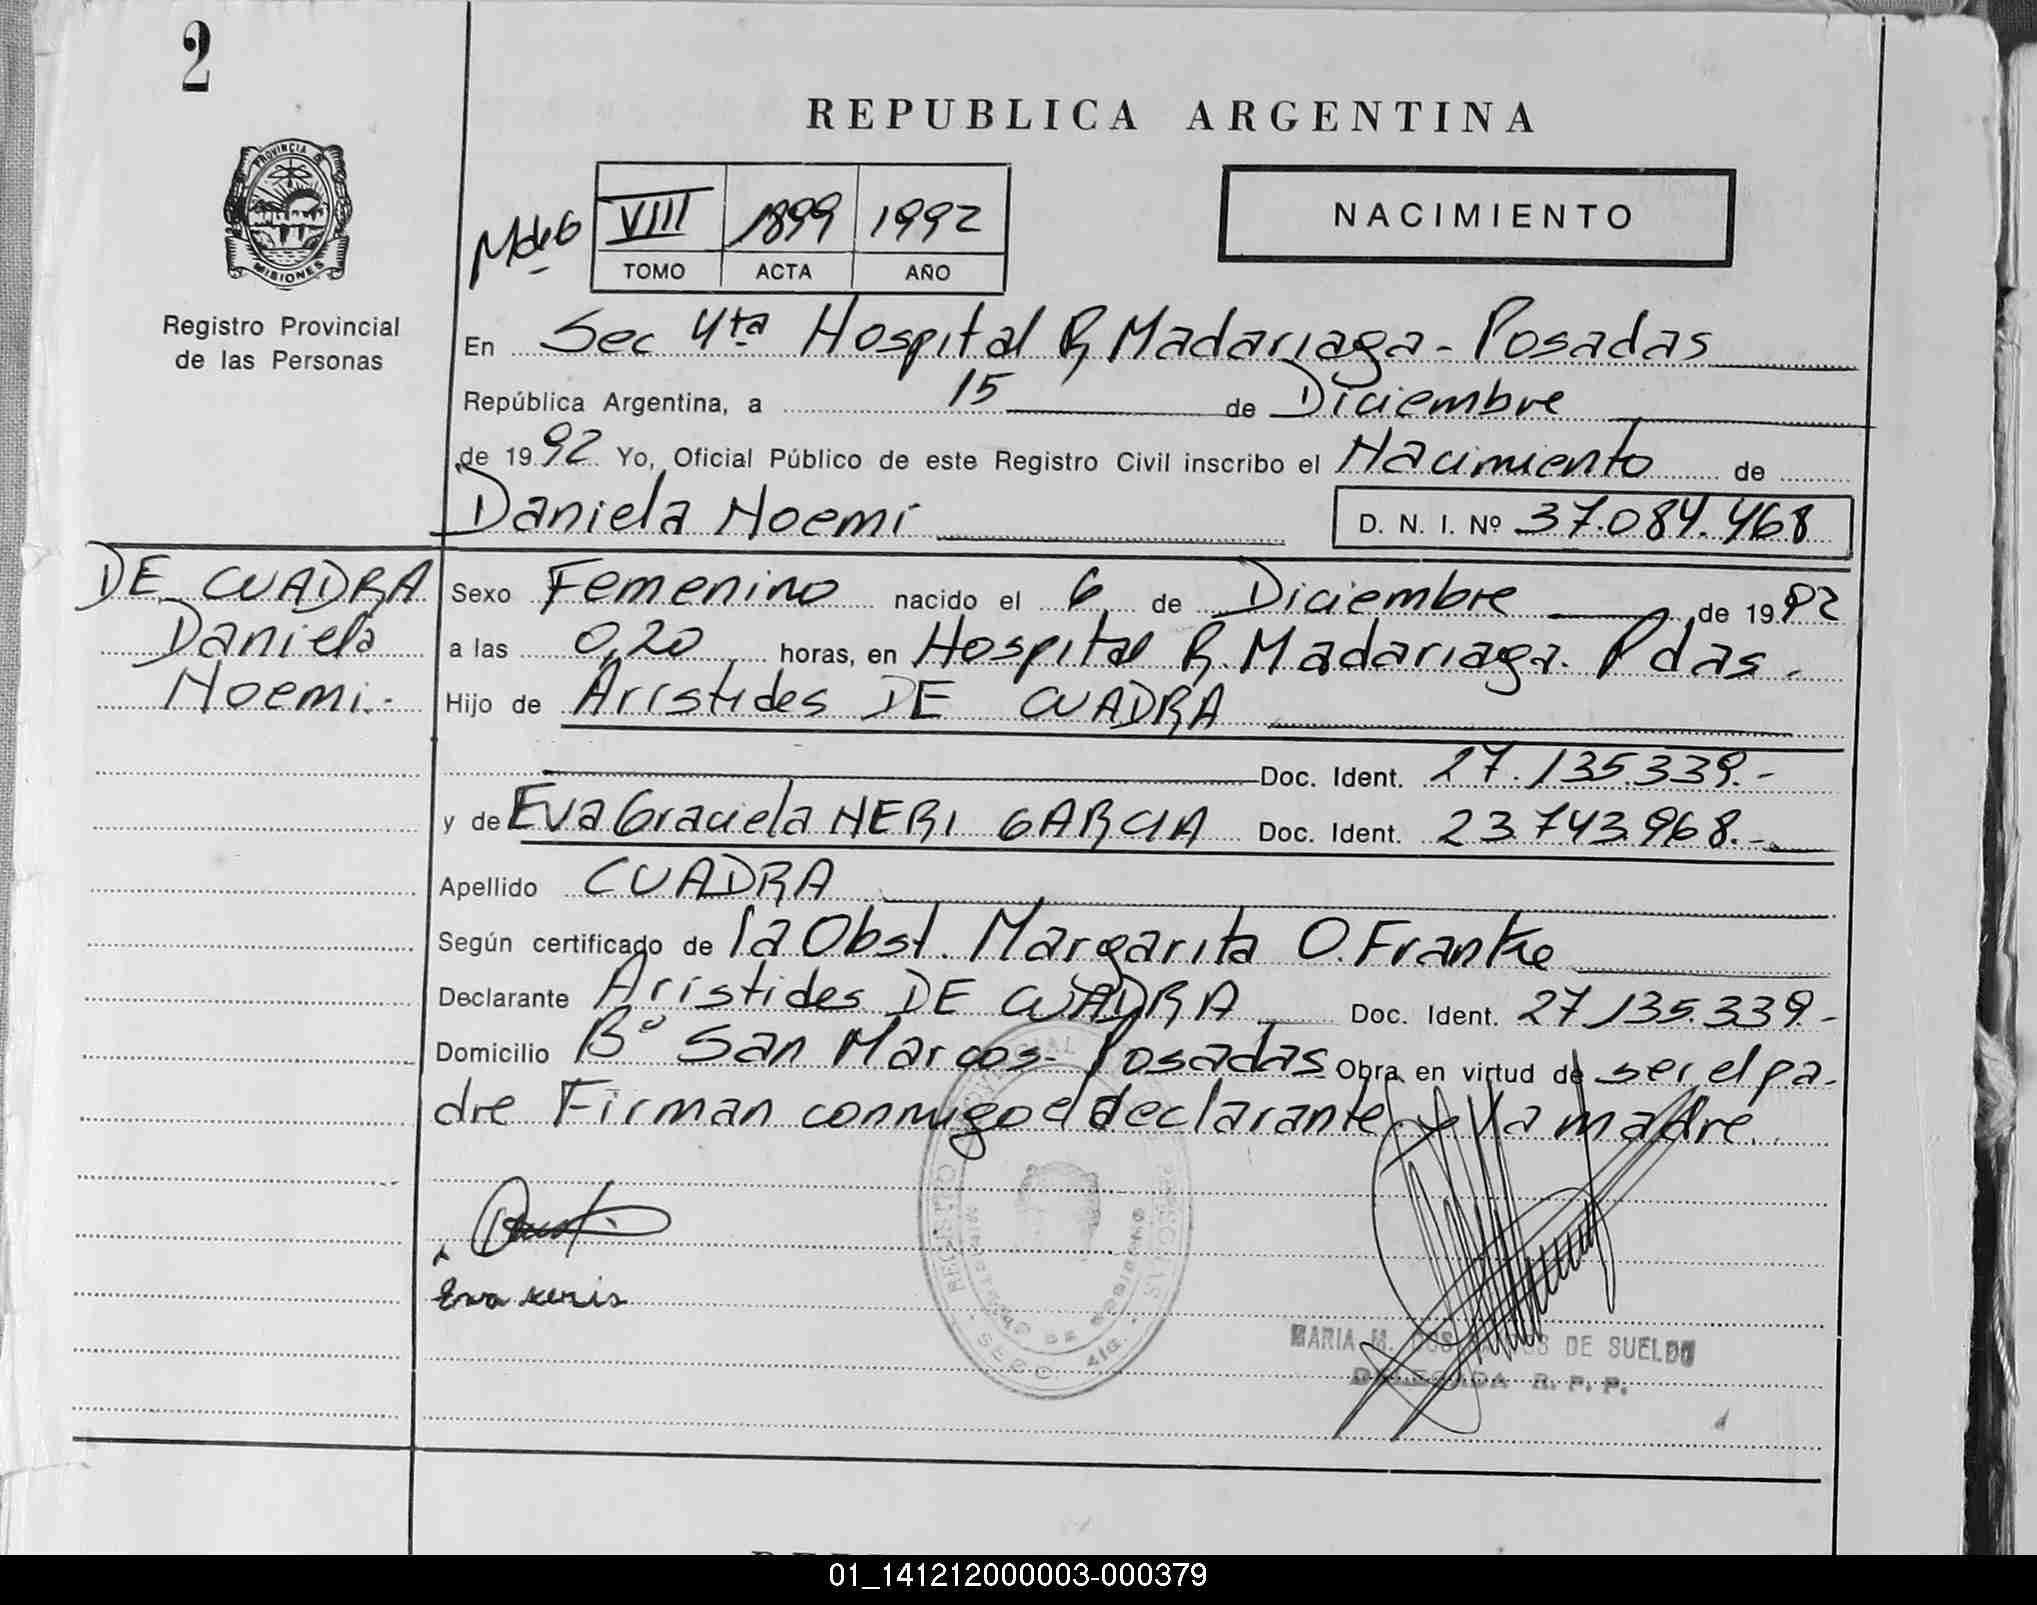 2
REPUBLICA ARGENTINA
PROVINCIA DE
MISIONES
Registro Provincial
de las Personas
VIII 1899 1992
TOMO ACTA AÑO
NACIMIENTO
En Sec 4ta Hospital R. Madariaga - Posadas
República Argentina, a 15 de Diciembre
de 1992 Yo, Oficial Público de este Registro Civil inscribo el Nacimiento de
Daniela Noemi D. N. I. Nº 37.084.468
DE CUADRA
Daniela
Noemi.-
Sexo Femenino nacido el 6 de Diciembre de 1992
a las 0,20 horas, en Hospital R. Madariaga. Pdas.
Hijo de Aristides DE CUADRA
Doc. Ident. 27.135.339.-
y de Eva Graciela NERI GARCIA Doc. Ident. 23.743.968.-
Apellido CUADRA
Según certificado de la Obst. Margarita O. Franke
Declarante Aristides DE CUADRA Doc. Ident. 27.135.339.-
Domicilio Bº San Marcos - Posadas Obra en virtud de ser el pa-
dre Firman conmigo el declarante y la madre.
Eva neris
MARIA M. DOS SANTOS DE SUELDO
DELEGADA R. P. P.
01_141212000003-000379